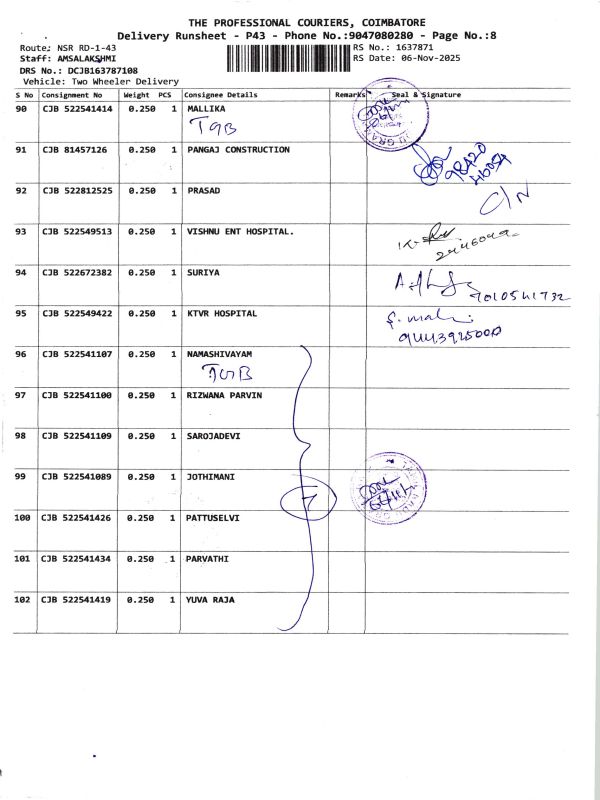 THE PROFESSIONAL COURIERS, COIMBATORE
Delivery Runsheet - P43 - Phone No.:9047080280 - Page No.:8
Route: NSR RD-1-43 RS No.: 1637871
Staff: AMSALAKSHMI RS Date: 06-Nov-2025
DRS No.: DCJB163787108
Vehicle: Two Wheeler Delivery
S No Consignment No Weight PCS Consignee Details Remarks Seal & Signature
90 CJB 522541414 0.250 1 MALLIKA
TGB
91 CJB 81457126 0.250 1 PANGAJ CONSTRUCTION
92 CJB 522812525 0.250 1 PRASAD
C/N
93 CJB 522549513 0.250 1 VISHNU ENT HOSPITAL.
94 CJB 522672382 0.250 1 SURIYA
7010541732
95 CJB 522549422 0.250 1 KTVR HOSPITAL
9443925000
96 CJB 522541107 0.250 1 NAMASHIVAYAM
TGB
97 CJB 522541100 0.250 1 RIZWANA PARVIN
98 CJB 522541109 0.250 1 SAROJADEVI
99 CJB 522541089 0.250 1 JOTHIMANI
7
100 CJB 522541426 0.250 1 PATTUSELVI
101 CJB 522541434 0.250 1 PARVATHI
102 CJB 522541419 0.250 1 YUVA RAJA